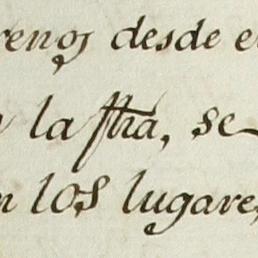 renos desde e
la ſtra, se
n los lugare